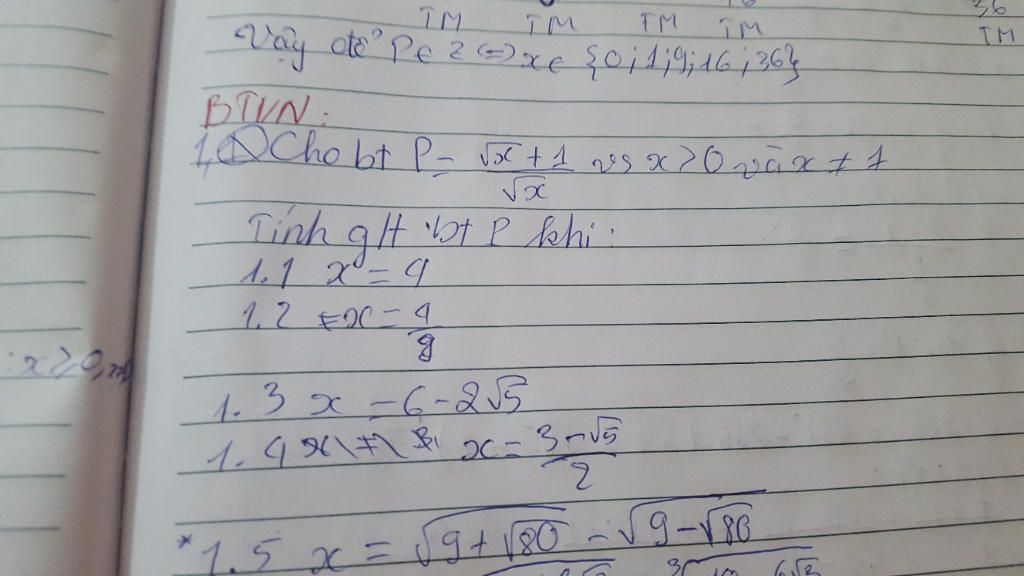 TM TM TM TM
36
TM
Vậy để P ∈ Z <=> x ∈ {0; 1; 9; 16; 36}
BTVN:
1, ① Cho bt P = (√x + 1)/√x vs x > 0 và x ≠ 1
Tính gtt bt P khi:
1.1 x = 4
1.2 x = 4/9
1.3 x = 6 - 2√5
: x ≥ 0,
1.4 x = (3 - √5)/2
* 1.5 x = √(9 + √80) - √(9 - √80)